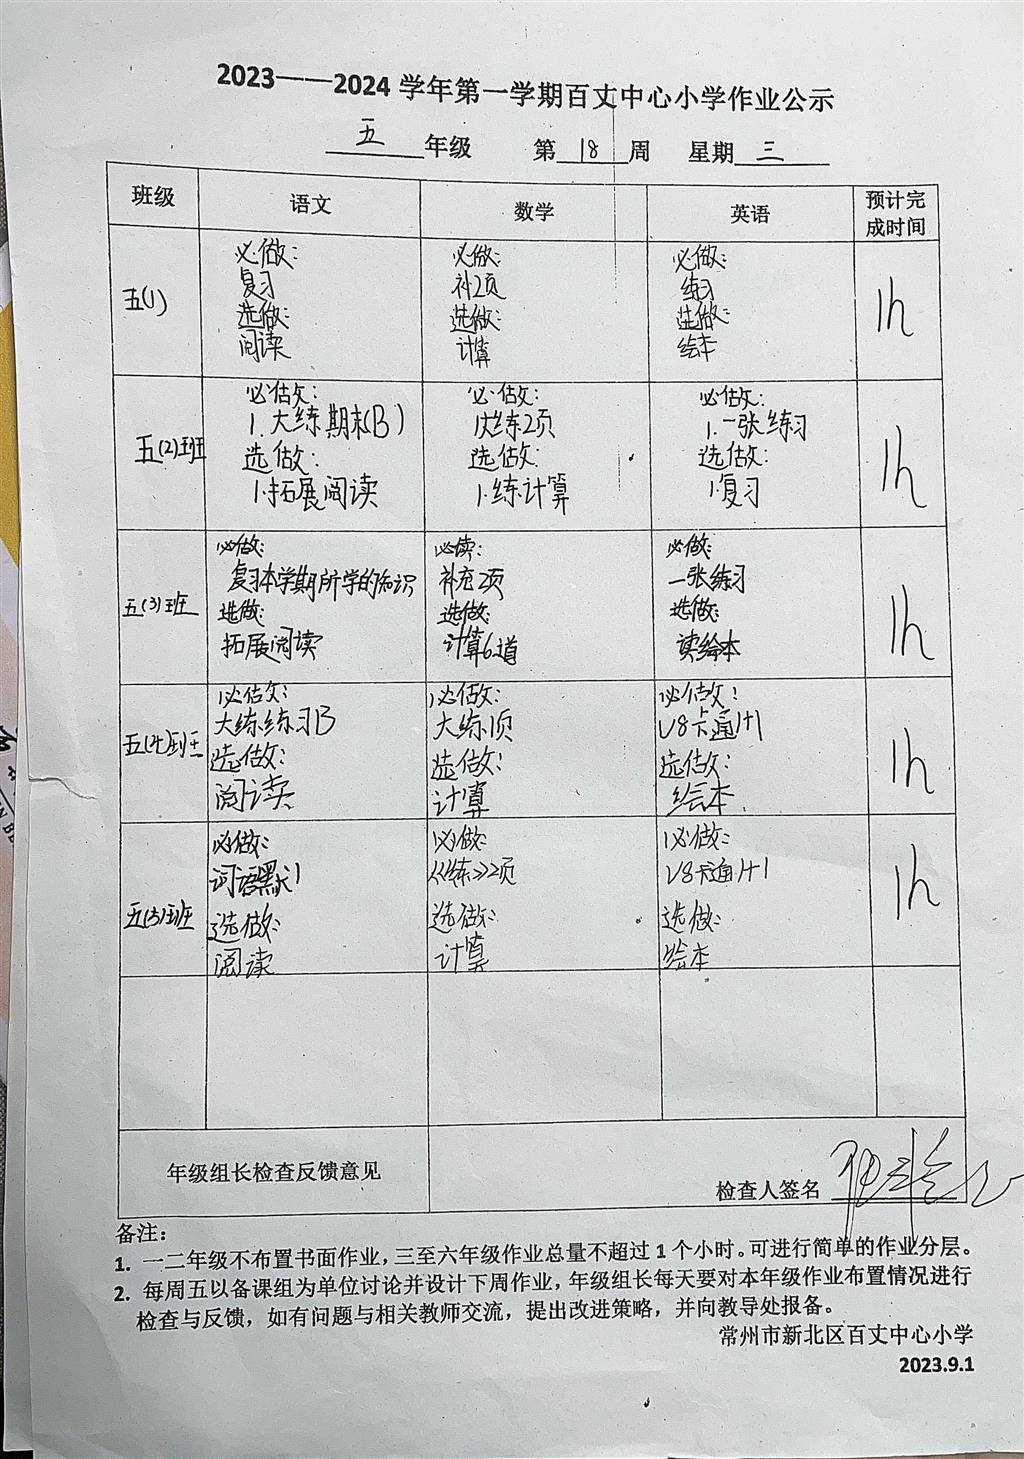 2023——2024 学年第一学期百丈中心小学作业公示
五 年级 第 18 周 星期 三
班级 语文 数学 英语 预计完成时间
五(1)
必做:
复习
选做:
阅读
必做:
补2页
选做:
计算
必做:
练习
选做:
绘本
1h
五(2)班
必做:
1.大练期末(B)
选做:
1.拓展阅读
必做:
大练2页
选做:
1.练计算
必做:
1.一张练习
选做:
1.复习
1h
五(3)班
必做:
复习本学期所学的知识
选做:
拓展阅读
必读:
补充2页
选做:
计算6道
必做:
一张练习
选做:
读绘本
1h
五(4)班
必做:
大练练习B
选做:
阅读
必做:
大练1页
选做:
计算
必做:
U8卡通1+1
选做:
绘本
1h
五(5)班
必做:
词语默1
选做:
阅读
必做:
《练》2页
选做:
计算
必做:
U8卡通1+1
选做:
绘本
1h
年级组长检查反馈意见
检查人签名
备注:
1. 一二年级不布置书面作业，三至六年级作业总量不超过 1 个小时。可进行简单的作业分层。
2. 每周五以备课组为单位讨论并设计下周作业，年级组长每天要对本年级作业布置情况进行
检查与反馈，如有问题与相关教师交流，提出改进策略，并向教导处报备。
常州市新北区百丈中心小学
2023.9.1